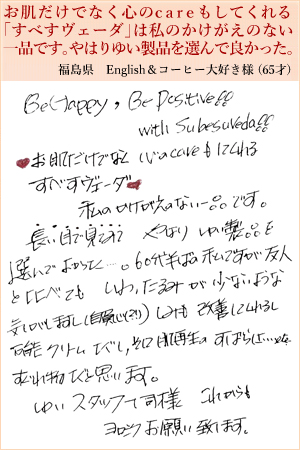 お肌だけでなく心のcareもしてくれる
「すべすヴェーダ」は私のかけがえのない
一品です。やはりゆい製品を選んで良かった。
福島県 English＆コーヒー大好き様（65才）
Be Happy, Be Positive!!
with Subesuveda!!
お肌だけでなく 心のcareもしてくれる
すべすヴェーダ
私のかけがえのない一品です。
長い目で見てみて やはり ゆい製品を
選んでよかった…。60代半ばの私ですが友人
と比べても しわ、たるみが少ないような
気がしますし（自負しています）しみも改善してくれるし
万能クリームですし、その肌再生の すばらしい
すぐれ物だと思います。
ゆいスタッフご同様 これからも
ヨロシクお願い致します。